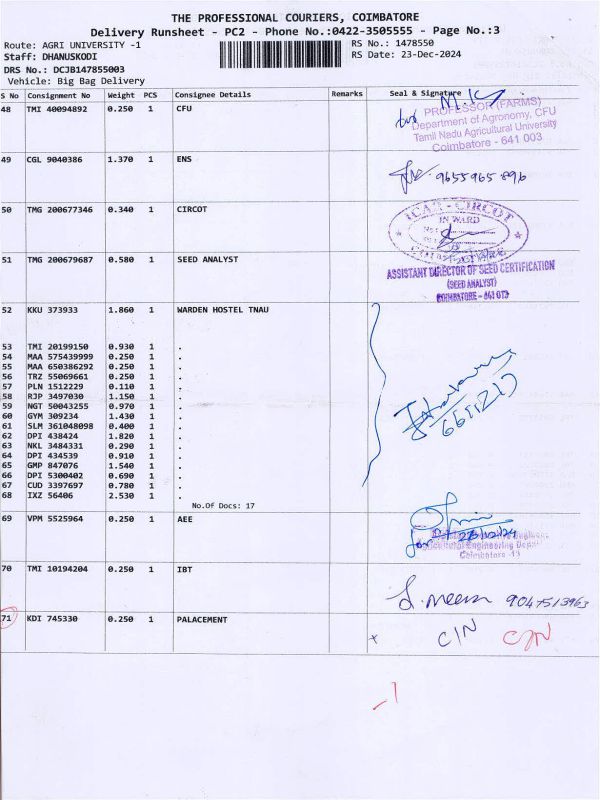 THE PROFESSIONAL COURIERS, COIMBATORE
Delivery Runsheet - PC2 - Phone No.:0422-3505555 - Page No.:3
Route: AGRI UNIVERSITY -1 RS No.: 1478550
Staff: DHANUSKODI RS Date: 23-Dec-2024
DRS No.: DCJB147855003
Vehicle: Big Bag Delivery
S No Consignment No Weight PCS Consignee Details Remarks Seal & Signature
48 TMI 40094892 0.250 1 CFU
for M.K
PROFESSOR (FARMS)
Department of Agronomy, CFU
Tamil Nadu Agricultural University
Coimbatore - 641 003
49 CGL 9040386 1.370 1 ENS
9655965896
50 TMG 200677346 0.340 1 CIRCOT
ICAR - CIRCOT
INWARD
51 TMG 200679687 0.580 1 SEED ANALYST
ASSISTANT DIRECTOR OF SEED CERTIFICATION
(SEED ANALYST)
COIMBATORE - 641 013
52 KKU 373933 1.860 1 WARDEN HOSTEL TNAU
53 TMI 20199150 0.930 1 .
54 MAA 575439999 0.250 1 .
55 MAA 650386292 0.250 1 .
56 TRZ 55069661 0.250 1 .
57 PLN 1512229 0.110 1 .
58 RJP 3497030 1.150 1 .
59 NGT 50043255 0.970 1 .
60 GYM 309234 1.430 1 .
61 SLM 361048098 0.400 1 .
62 DPI 438424 1.820 1 .
63 NKL 3484331 0.290 1 .
64 DPI 434539 0.910 1 .
65 GMP 847076 1.540 1 .
66 DPI 5300402 0.690 1 .
67 CUD 3397697 0.780 1 .
68 IXZ 56406 2.530 1 .
No.Of Docs: 17
69 VPM 5525964 0.250 1 AEE
23/12/24
Agricultural Engineering Dept
Coimbatore -13
70 TMI 10194204 0.250 1 IBT
S. Meena 9047513963
71 KDI 745330 0.250 1 PALACEMENT
x C/N C/N
-1